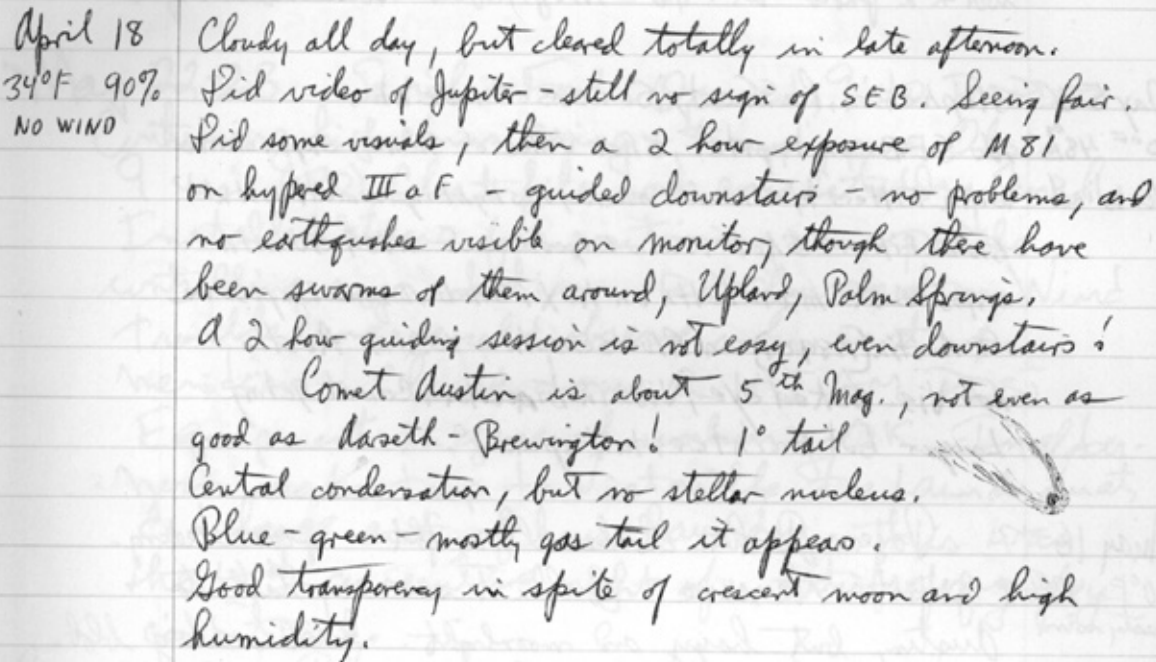 April 18
34°F 90%
NO WIND
Cloudy all day, but cleared totally in late afternoon.
Did video of Jupiter - still no sign of SEB. Seeing fair.
Did some visuals, then a 2 hour exposure of M81
on hypered III a F - guided downstairs - no problems, and
no earthqushes visible on monitor, though there have
been swarms of them around, Upland, Palm Springs.
A 2 hour guiding session is not easy, even downstairs!
Comet Austin is about 5th Mag., not even as
good as Aarseth - Brewington! 1° tail
Central condensation, but no stellar nucleus.
Blue - green - mostly gas tail it appears.
Good transparency in spite of crescent moon and high
humidity.